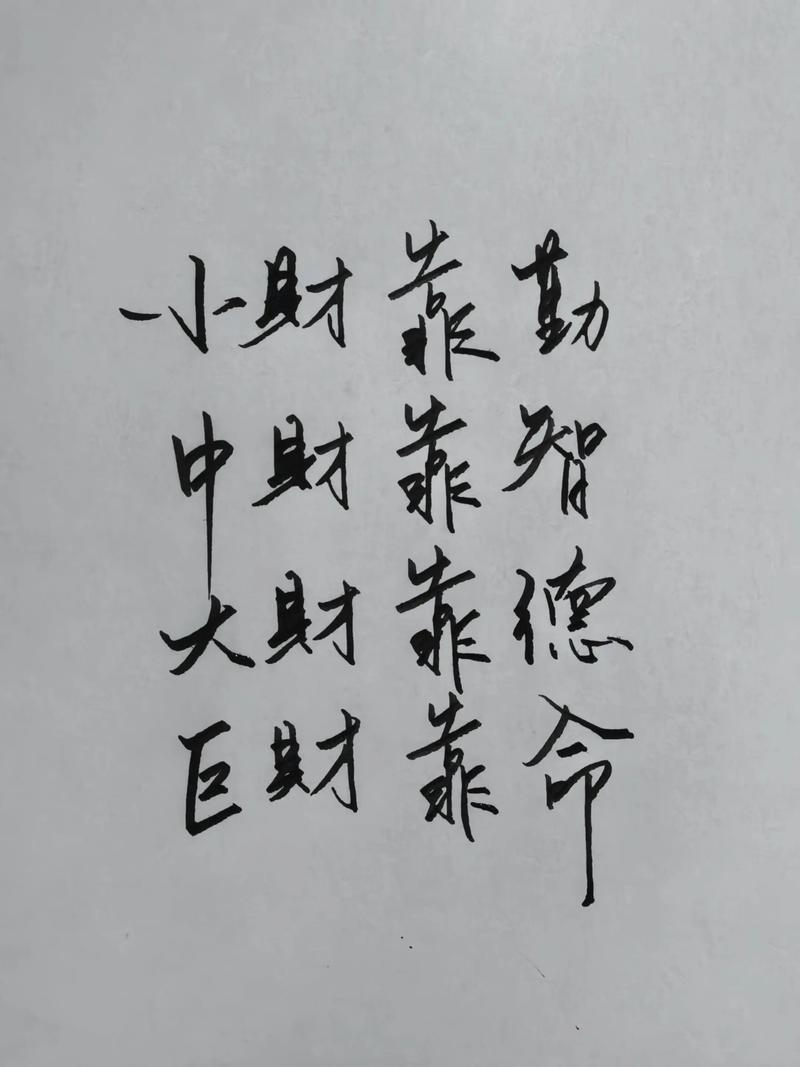 小財靠勤
中財靠智
大財靠德
巨財靠命